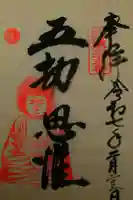 奉拝令和七年二月三日
五劫思惟